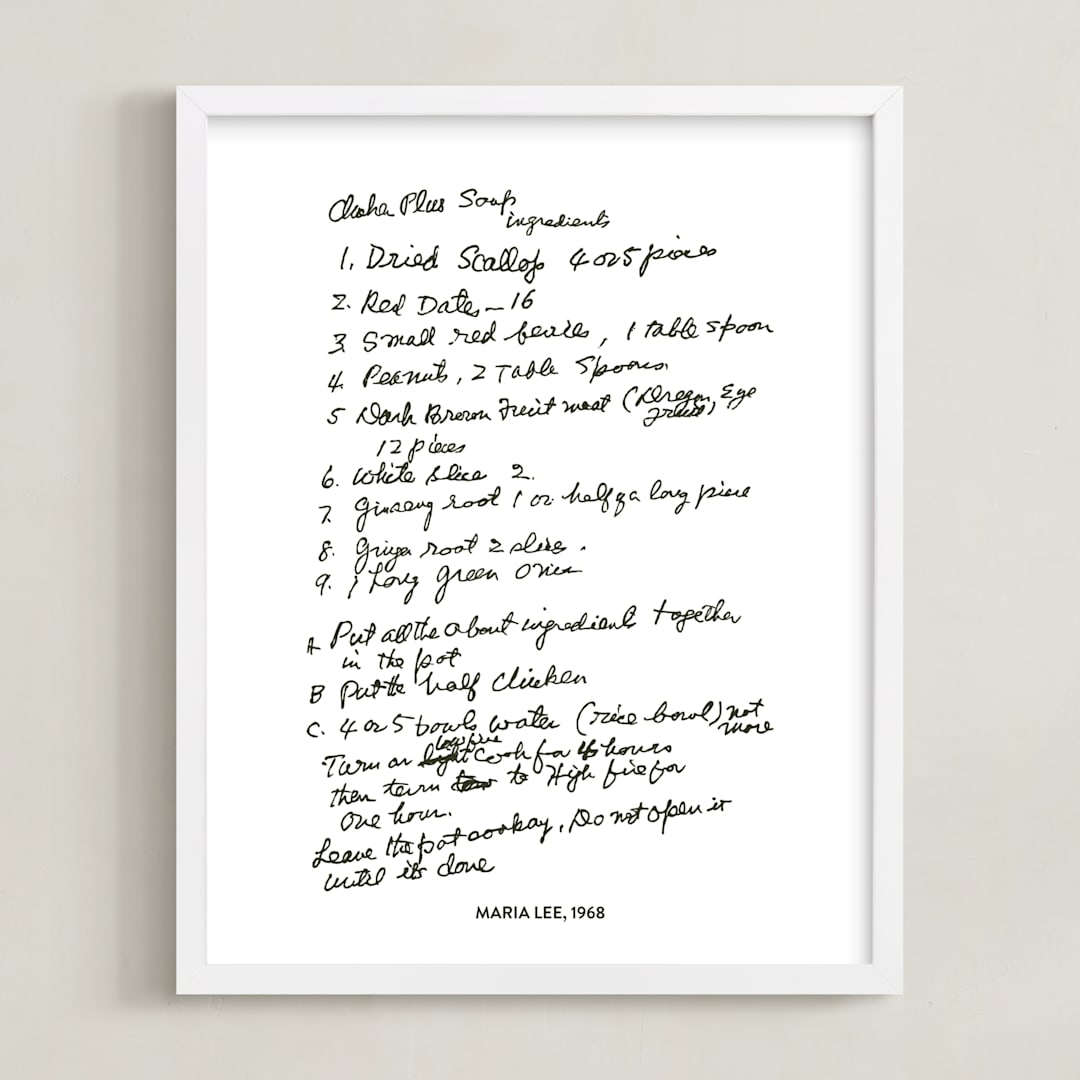 Plus Soup
ingredients
1. Dried Scallop 4 or 5 pieces
2. Red Dates – 16
3 Small red berries, 1 table spoon
4. Peanuts, 2 Table Spoons.
5 Dark Brown Fruit meat (Dragon Eye
fruit)
12 pieces
6. White slice 2.
7. Ginseng root 1 or half of a long piece
8. Ginger root 2 slices.
9. 1 Long green onion
A Put all the about ingredients together
in the pot
B Put the half chicken
C. 4 or 5 bowls water (rice bowl) not
more
Turn on low fire Cook for hours
then turn to High fire for
one hour.
Leave the pot , Do not open it
until its done
MARIA LEE, 1968